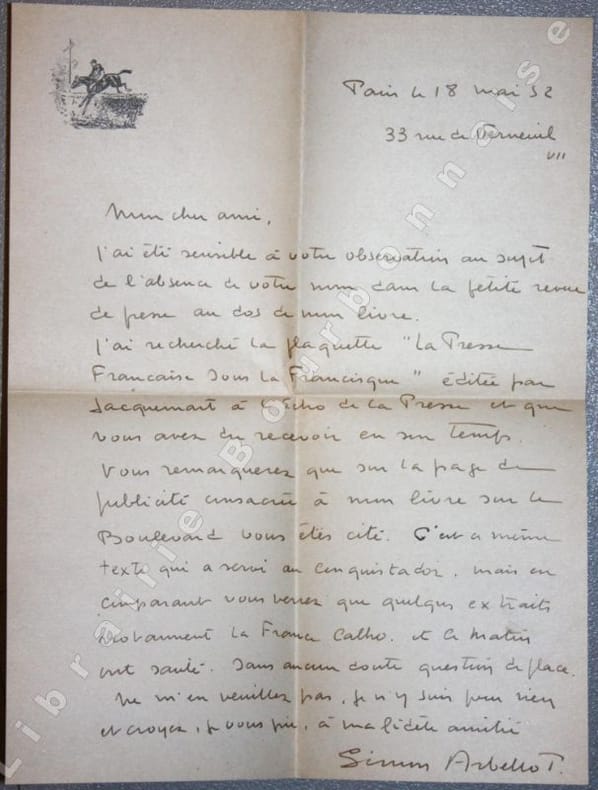 Paris le 18 mai 52
33 rue de Verneuil
VII
Mon cher ami,
J'ai été sensible à votre observation au sujet
de l'absence de votre nom dans la petite revue
de presse au dos de mon livre.
J'ai recherché la plaquette "La Presse
Française sous la Francisque" éditée par
Jacquemart à l'Echo de la Presse et que
vous avez du recevoir en son temps.
Vous remarquerez que sur la page de
publicité consacrée à mon livre sur le
Boulevard vous êtes cité. C'est ce même
texte qui a servi au Conquistador, mais en
comparant vous verrez que quelques extraits
notamment la France Catho. et le Matin
ont sauté. Sans aucun doute question de place.
Ne m'en veuillez pas, je n'y suis pour rien
et croyez, je vous prie, à ma fidèle amitié
Simon Arbellot.
Librairie Bourbonnorse